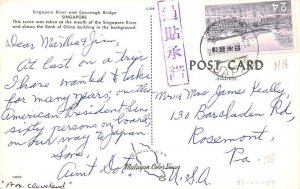 Singapore River and Cavenagh Bridge
SINGAPORE
This scene was taken at the mouth of the Singapore River
and shows the Bank of China building in the background.
Dear Martha & Jim,
At last on a trip
I have wanted to take
for many years, on the
American President Line
sixty persons on board
on our way to Japan
Love,
Aunt Dot.
(Pres. Cleveland)
Malayan Color Views
24
POST CARD
Address
Mr & Mrs James Kelly,
130 Barcladen Rd,
Rosemont,
Pa.
U.S.A.